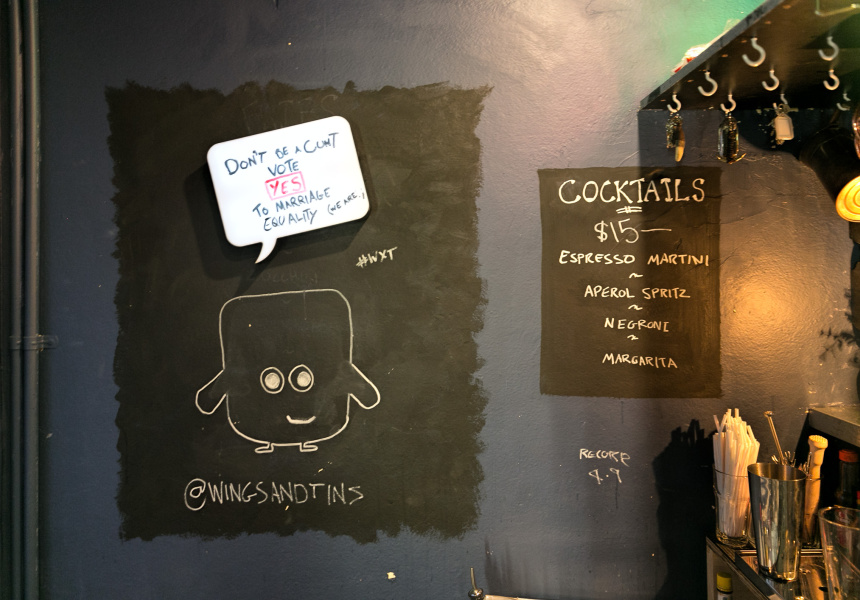 DON'T BE A CUNT
VOTE
YES
TO MARRIAGE
EQUALITY (WE ARE..)
#WXT
@WINGSANDTINS
COCKTAILS
$15—
ESPRESSO MARTINI
~
APEROL SPRITZ
~
NEGRONI
~
MARGARITA
RECORD
4.9